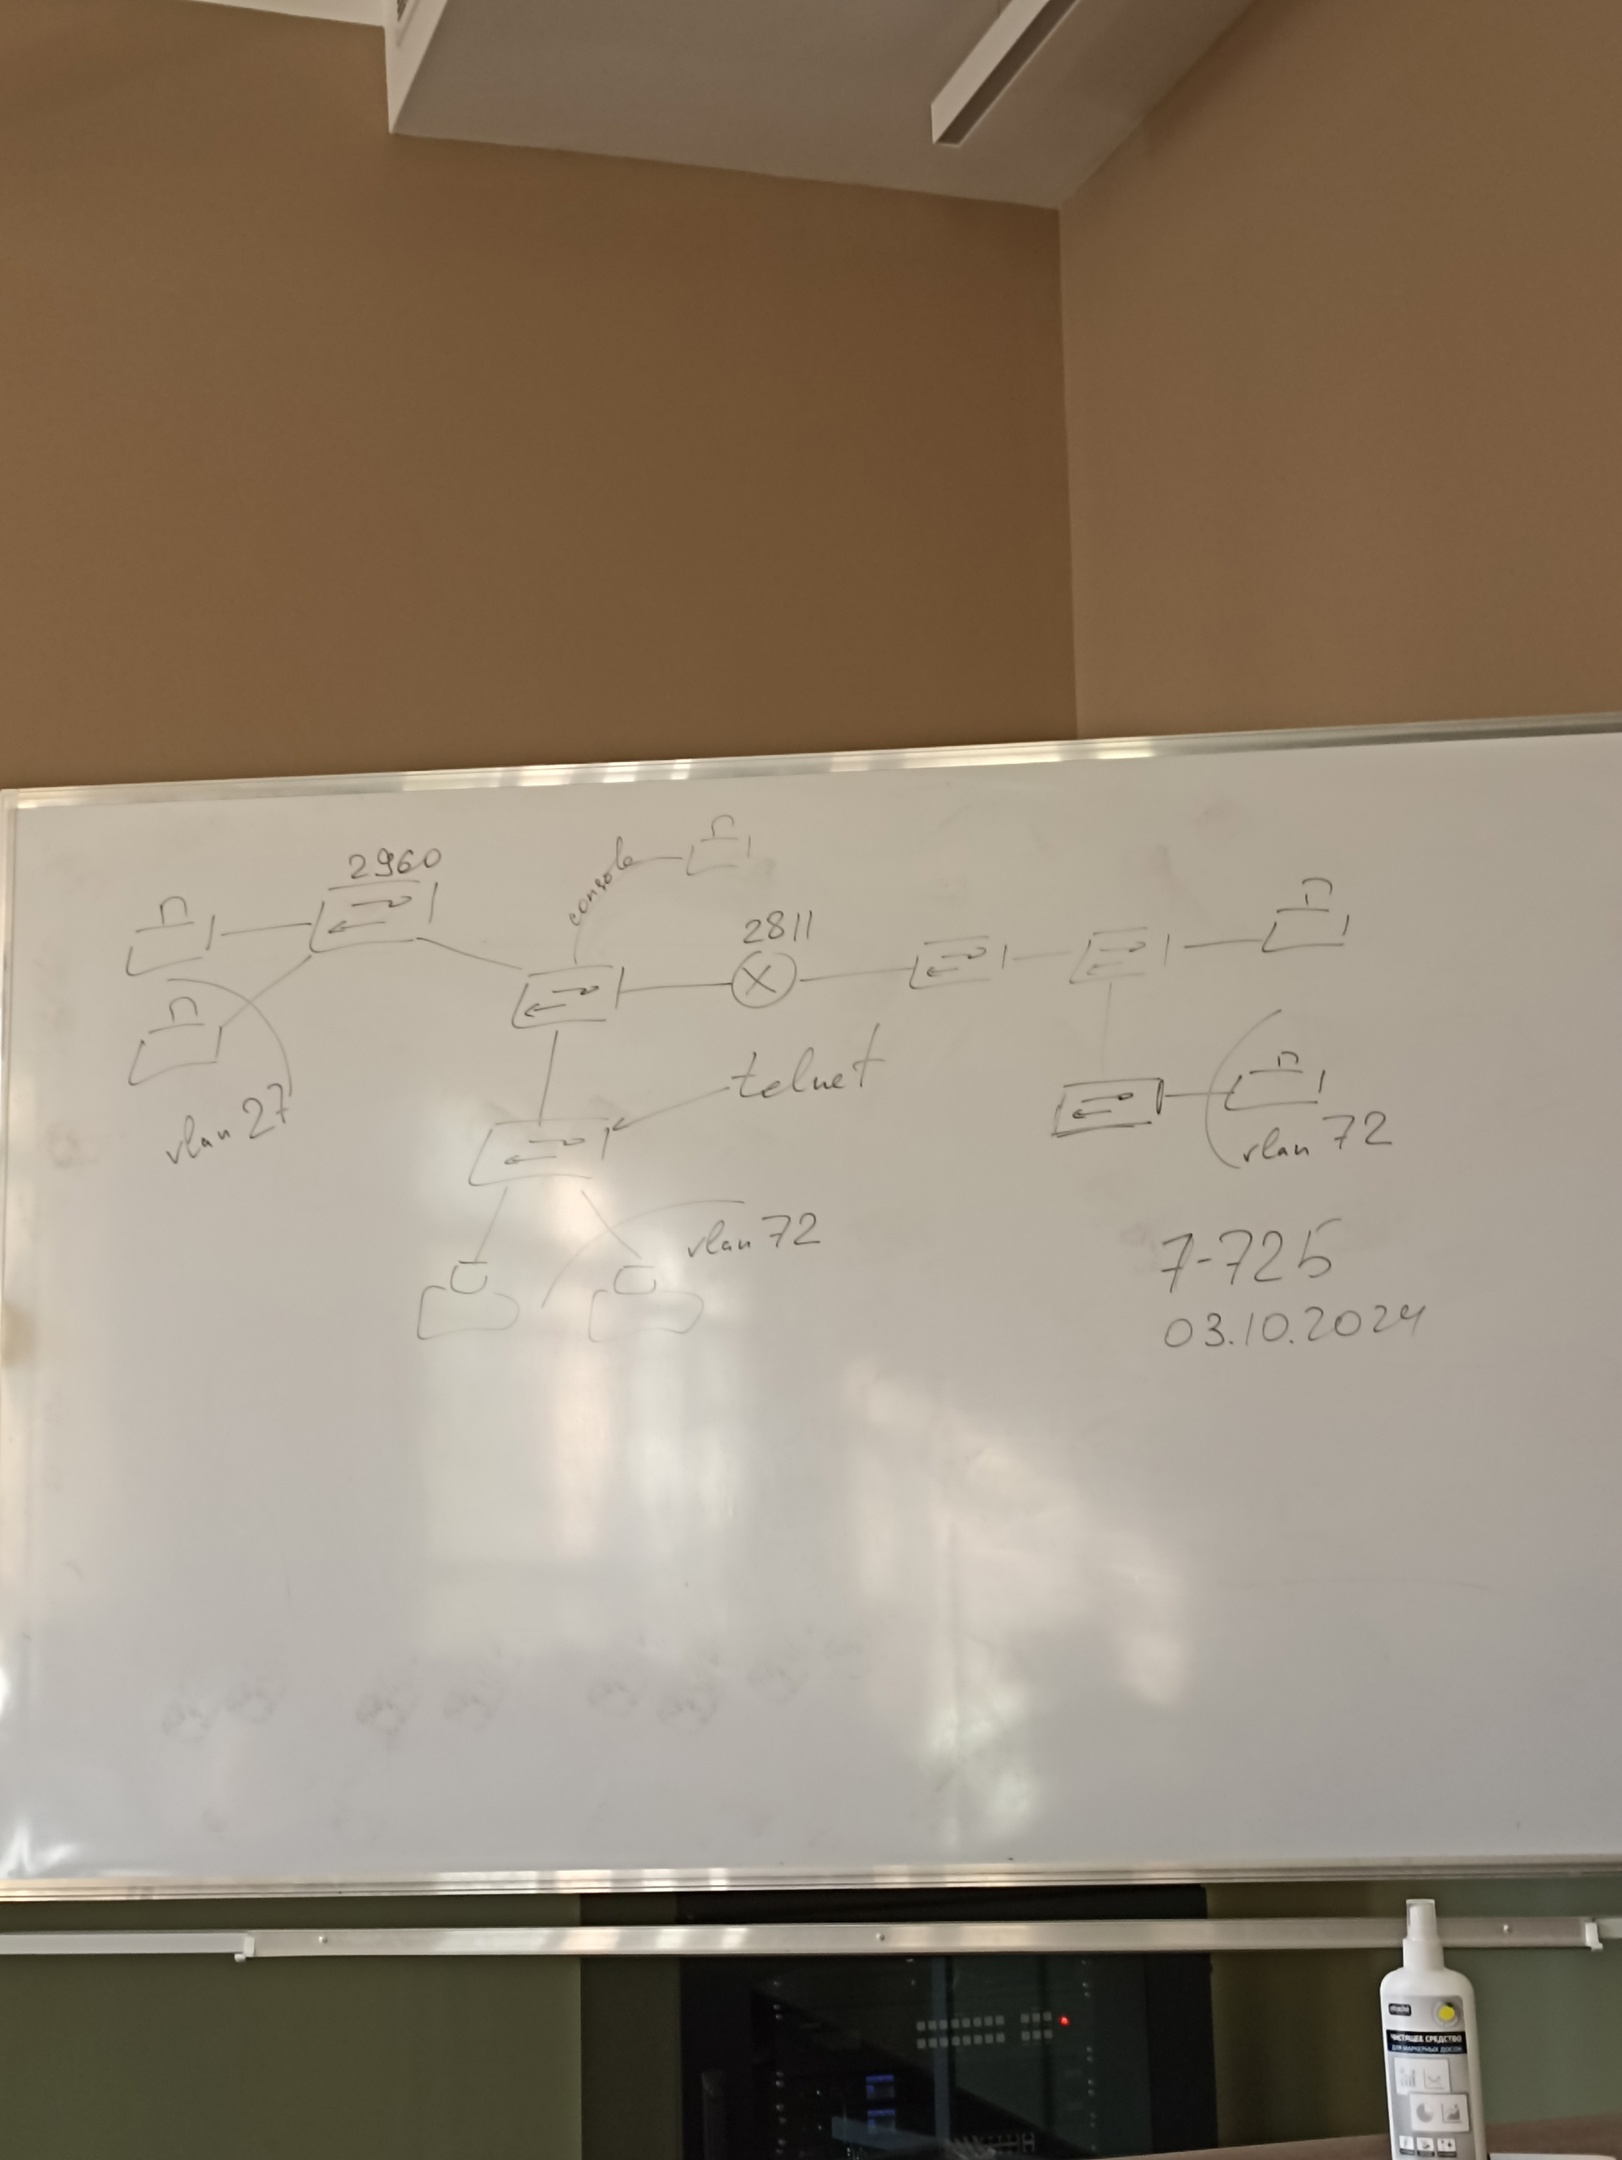 2960
console
2811
telnet
vlan 27
vlan 72
vlan 72
7-725
03.10.2024
ЧИСТЯЩЕЕ СРЕДСТВО
ДЛЯ МАРКЕРНЫХ ДОСОК